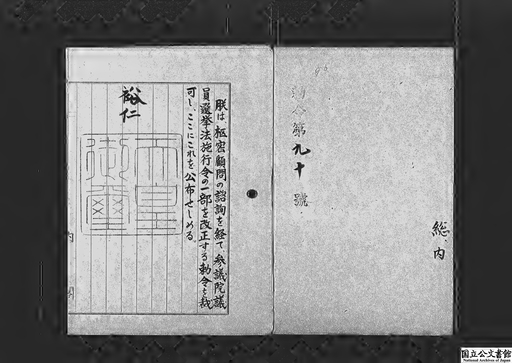 総、内
勅令第九十號
朕は、枢密顧問の諮詢を経て、参議院議
員選挙法施行令の一部を改正する勅令を裁
可し、ここにこれを公布せしめる。
裕仁
天皇
御璽
国立公文書館
National Archives of Japan